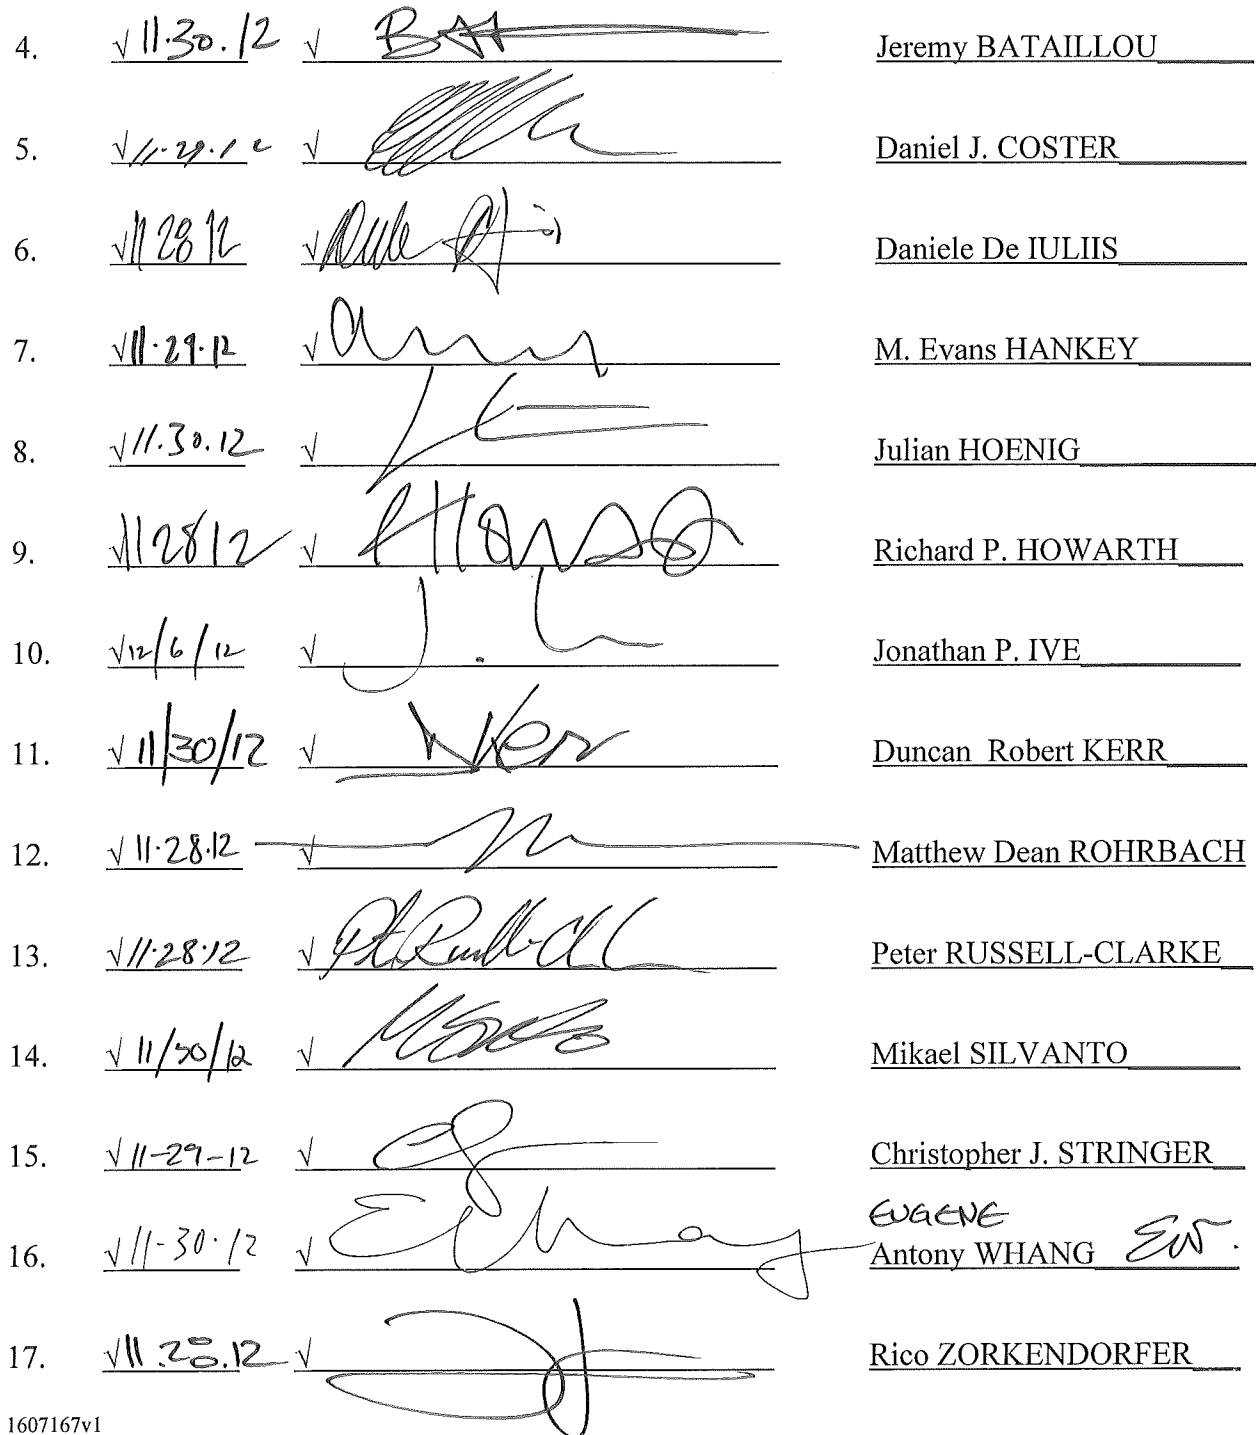 4. √ 11.30.12 √ Jeremy BATAILLOU
5. √ 11.29.12 √ Daniel J. COSTER
6. √ 11 28 12 √ Daniele De IULIIS
7. √ 11.29.12 √ M. Evans HANKEY
8. √ 11.30.12 √ Julian HOENIG
9. √ 11 28 12 √ Richard P. HOWARTH
10. √ 12/6/12 √ Jonathan P. IVE
11. √ 11/30/12 √ Kerr Duncan Robert KERR
12. √ 11.28.12 √ Matthew Dean ROHRBACH
13. √ 11.28.12 √ Peter RUSSELL-CLARKE
14. √ 11/30/12 √ Mikael SILVANTO
15. √ 11-29-12 √ Christopher J. STRINGER
EUGENE
16. √ 11-30.12 √ Antony WHANG EW.
17. √ 11.28.12 √ Rico ZORKENDORFER
1607167v1